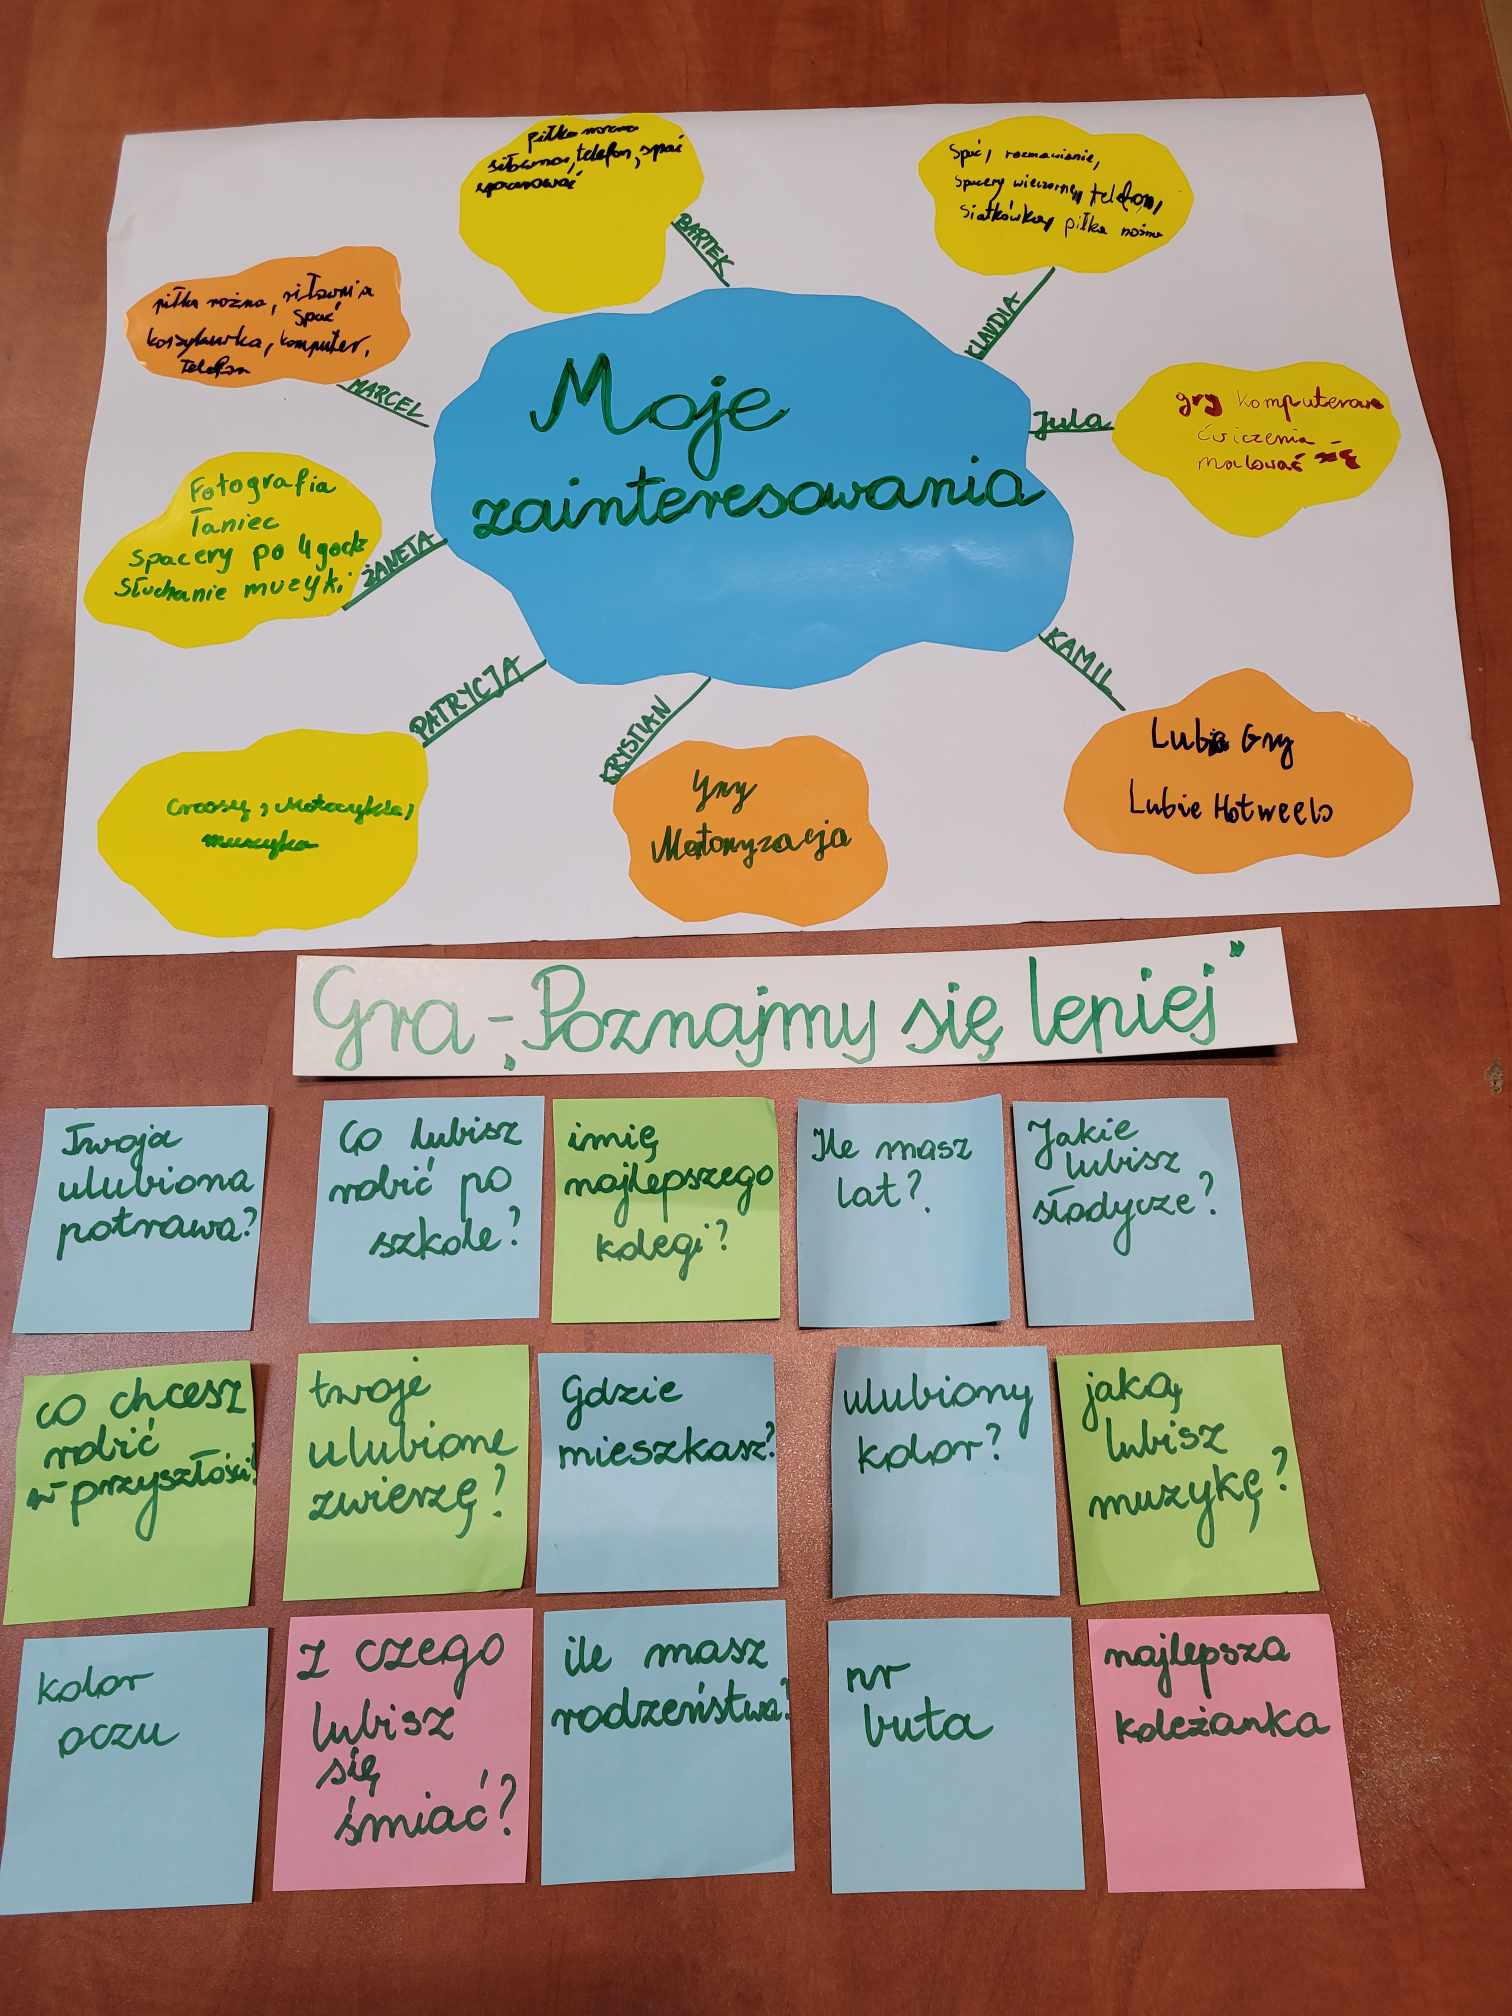 piłka nożna
siłownia, telefon, spać
spacerować
BARTEK
spać, rozmawianie,
spacery wieczorne, telefon,
siatkówka, piłka nożna
KLAUDIA
piłka nożna, siłownia
spać
koszykurka, komputer,
telefon
MARCEL
Moje
zainteresowania
Jula
gry komputerowe
ćwiczenia
malować się
Fotografia
Taniec
spacery po 4 godz
słuchanie muzyki
ŻANETA
KAMIL
Lubie Gry
Lubie Hotweels
PATRYCJA
Crossy, Motocykle,
muzyka
KRYSTIAN
Gry
Motoryzacja
Gra - „Poznajmy się lepiej"
Twoja
ulubiona
potrawa?
Co lubisz
robić po
szkole?
imię
najlepszego
kolegi?
Ile masz
lat?
Jakie
lubisz
słodycze?
co chcesz
robić
w przyszłości?
twoje
ulubione
zwierzę?
Gdzie
mieszkasz?
ulubiony
kolor?
jaką
lubisz
muzykę?
kolor
oczu
z czego
lubisz
się
śmiać?
ile masz
rodzeństwa?
nr
buta
najlepsza
koleżanka